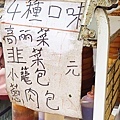 4種口味
高麗菜
韭菜
小籠包
蔥肉包
元